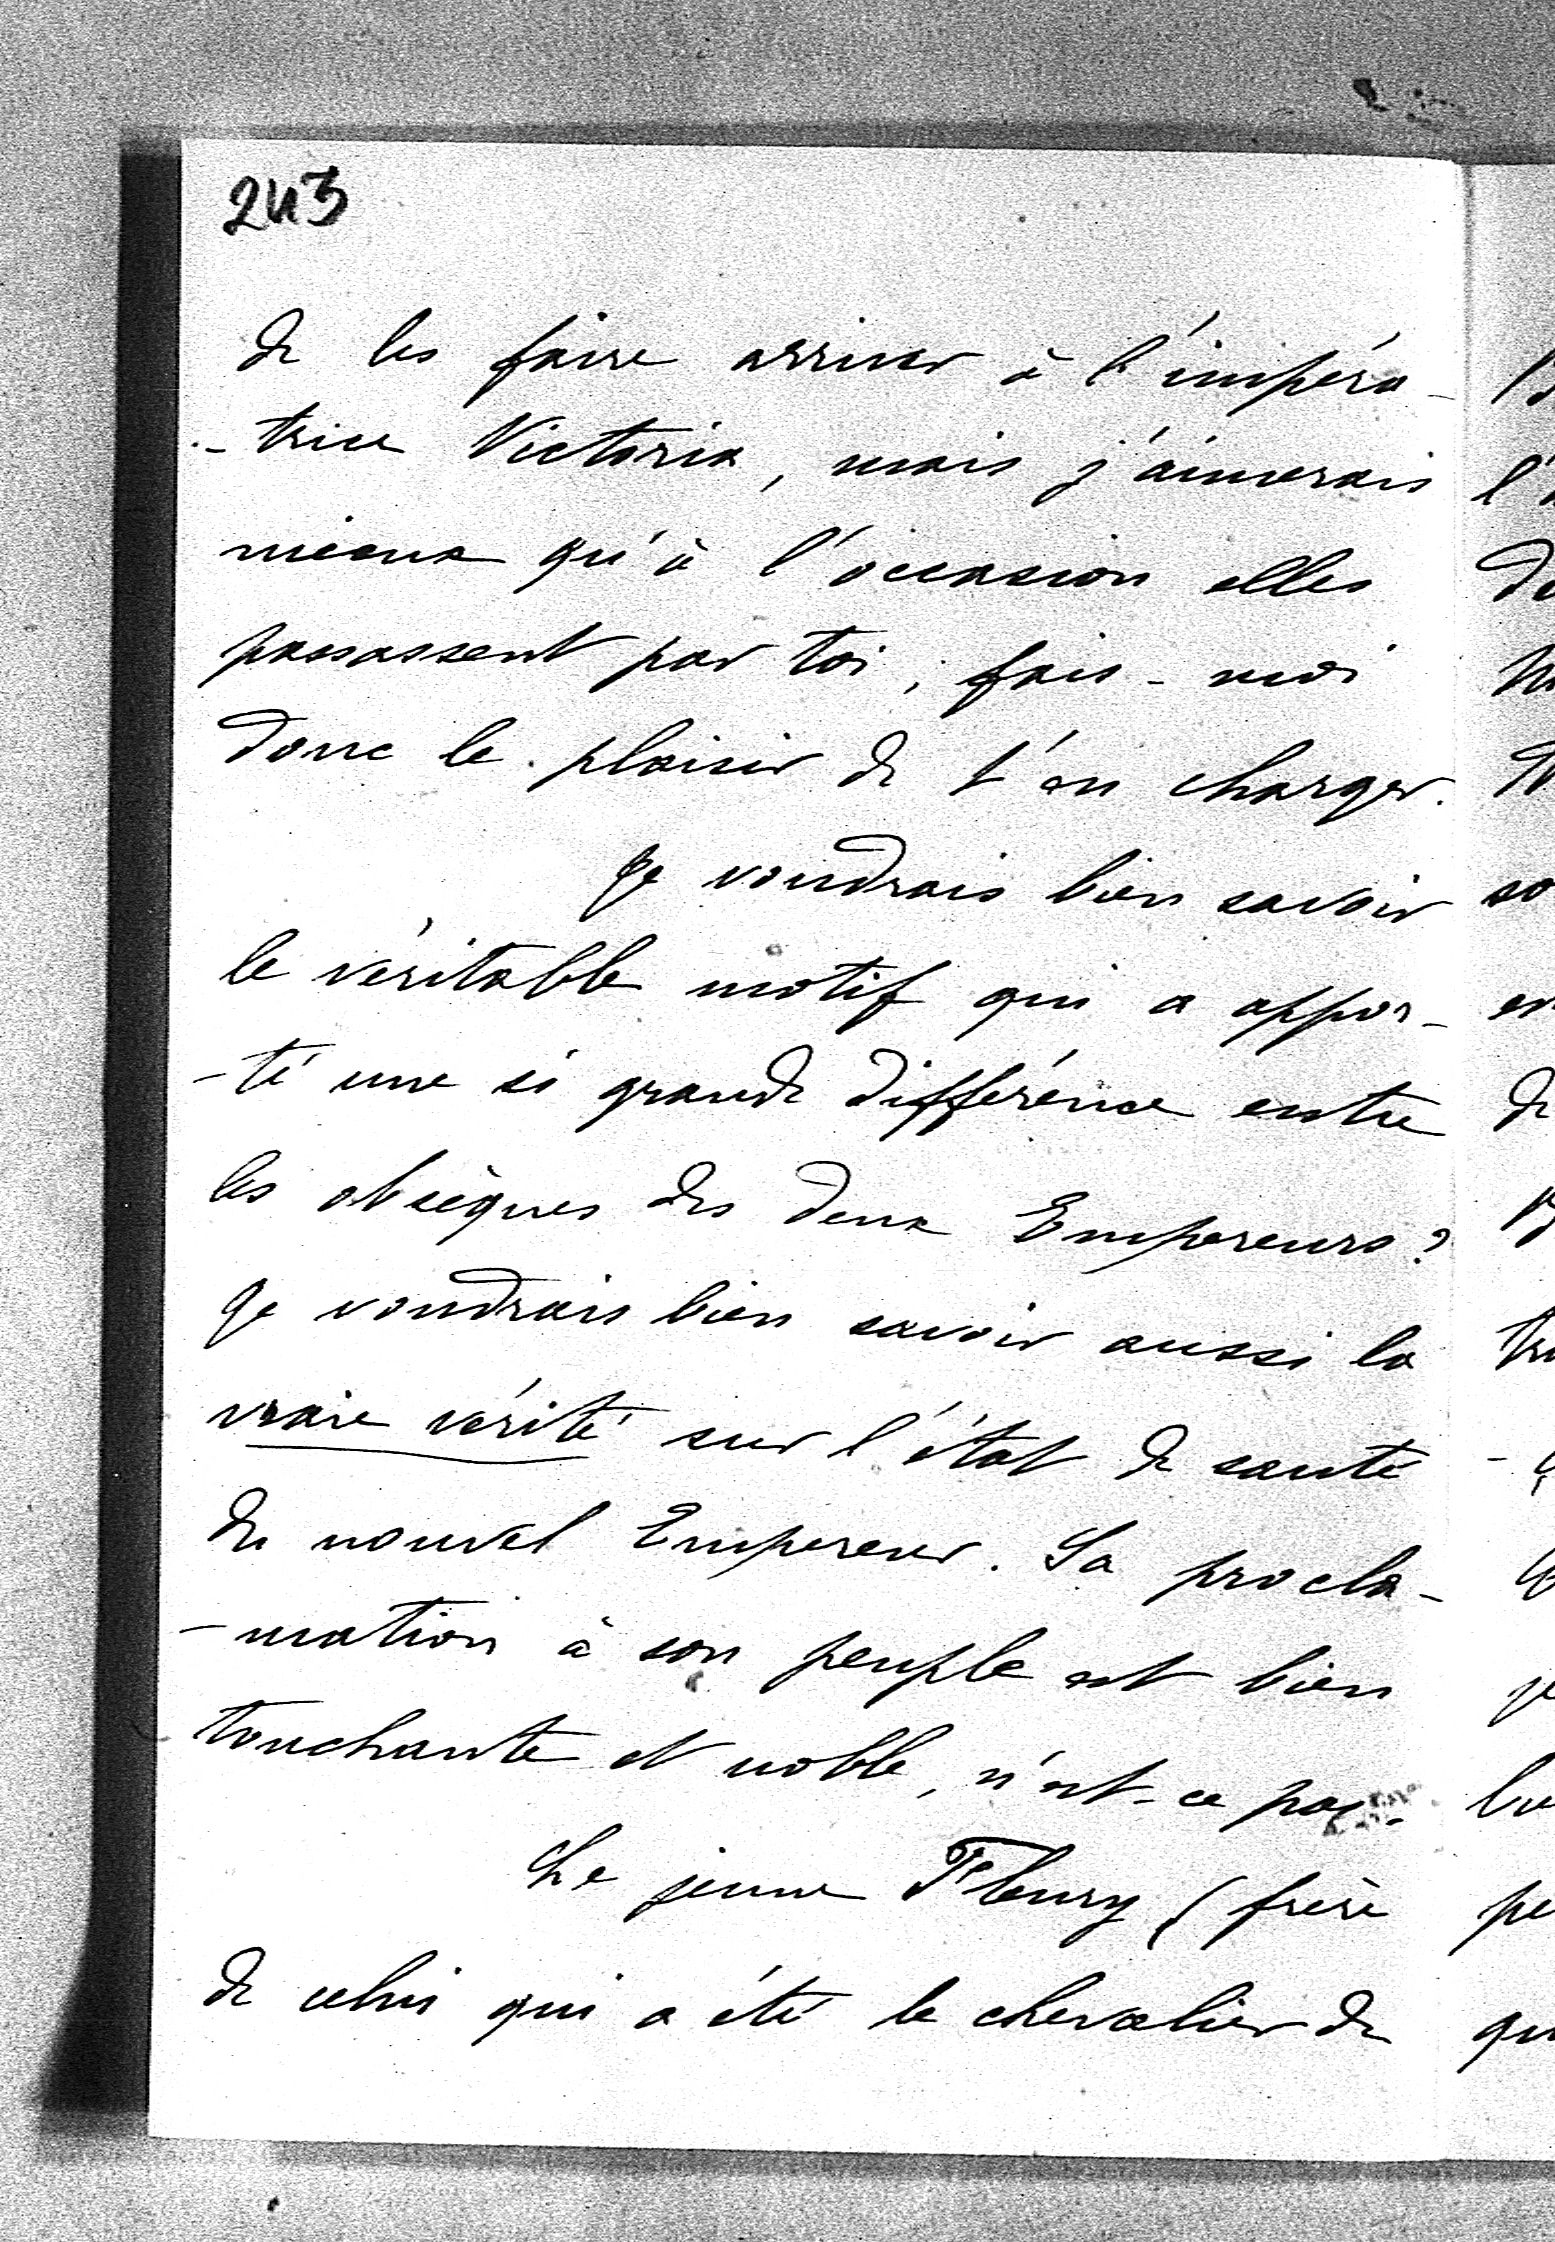 243
de les faire arriver à l'impéra-
-trice Victoria, mais j'aimerais
mieux qu'à l'occasion elles
passassent par toi ; fais-moi
donc le plaisir de t'en charger.
Je voudrais bien savoir
le véritable motif qui a appor-
-té une si grande différence entre
les obsèques des deux Empereurs ?
Je voudrais bien savoir aussi la
vraie vérité sur l'état de santé
du nouvel Empereur. Sa procla-
-mation à son peuple est bien
touchante et noble, n'est-ce pas.
Le jeune Fleury (frère
de celui qui a été le chevalier de